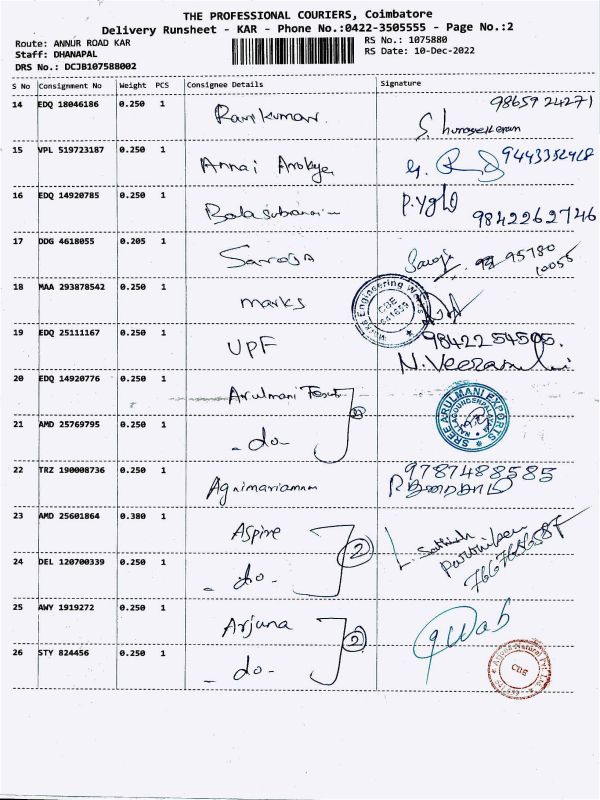 THE PROFESSIONAL COURIERS, Coimbatore
Delivery Runsheet - KAR - Phone No.:0422-3505555 - Page No.:2
Route: ANNUR ROAD KAR
Staff: DHANAPAL
DRS No.: DCJB107588002
RS No.: 1075880
RS Date: 10-Dec-2022
S No Consignment No Weight PCS Consignee Details Signature
14 EDQ 18046186 0.250 1 Ravikumar. 9865924271
15 VPL 519723187 0.250 1 Annai 9443352428
16 EDQ 14920785 0.250 1 9842262746
17 DDG 4618055 0.205 1 Saroja 95780
10055
18 MAA 293878542 0.250 1 marks Marks Engineering Works CBE 641659
19 EDQ 25111167 0.250 1 UPF 9842254505.
20 EDQ 14920776 0.250 1 Arulmani
21 AMD 25769795 0.250 1 -do- 2 SREE ARULMANI EXPORTS
22 TRZ 190008736 0.250 1 Agnimariamman 9787488585
23 AMD 25601864 0.380 1 Aspire L. Sathish
24 DEL 120700339 0.250 1 -do- 2
25 AWY 1919272 0.250 1 Arjuna
26 STY 824456 0.250 1 -do- 2 CBE